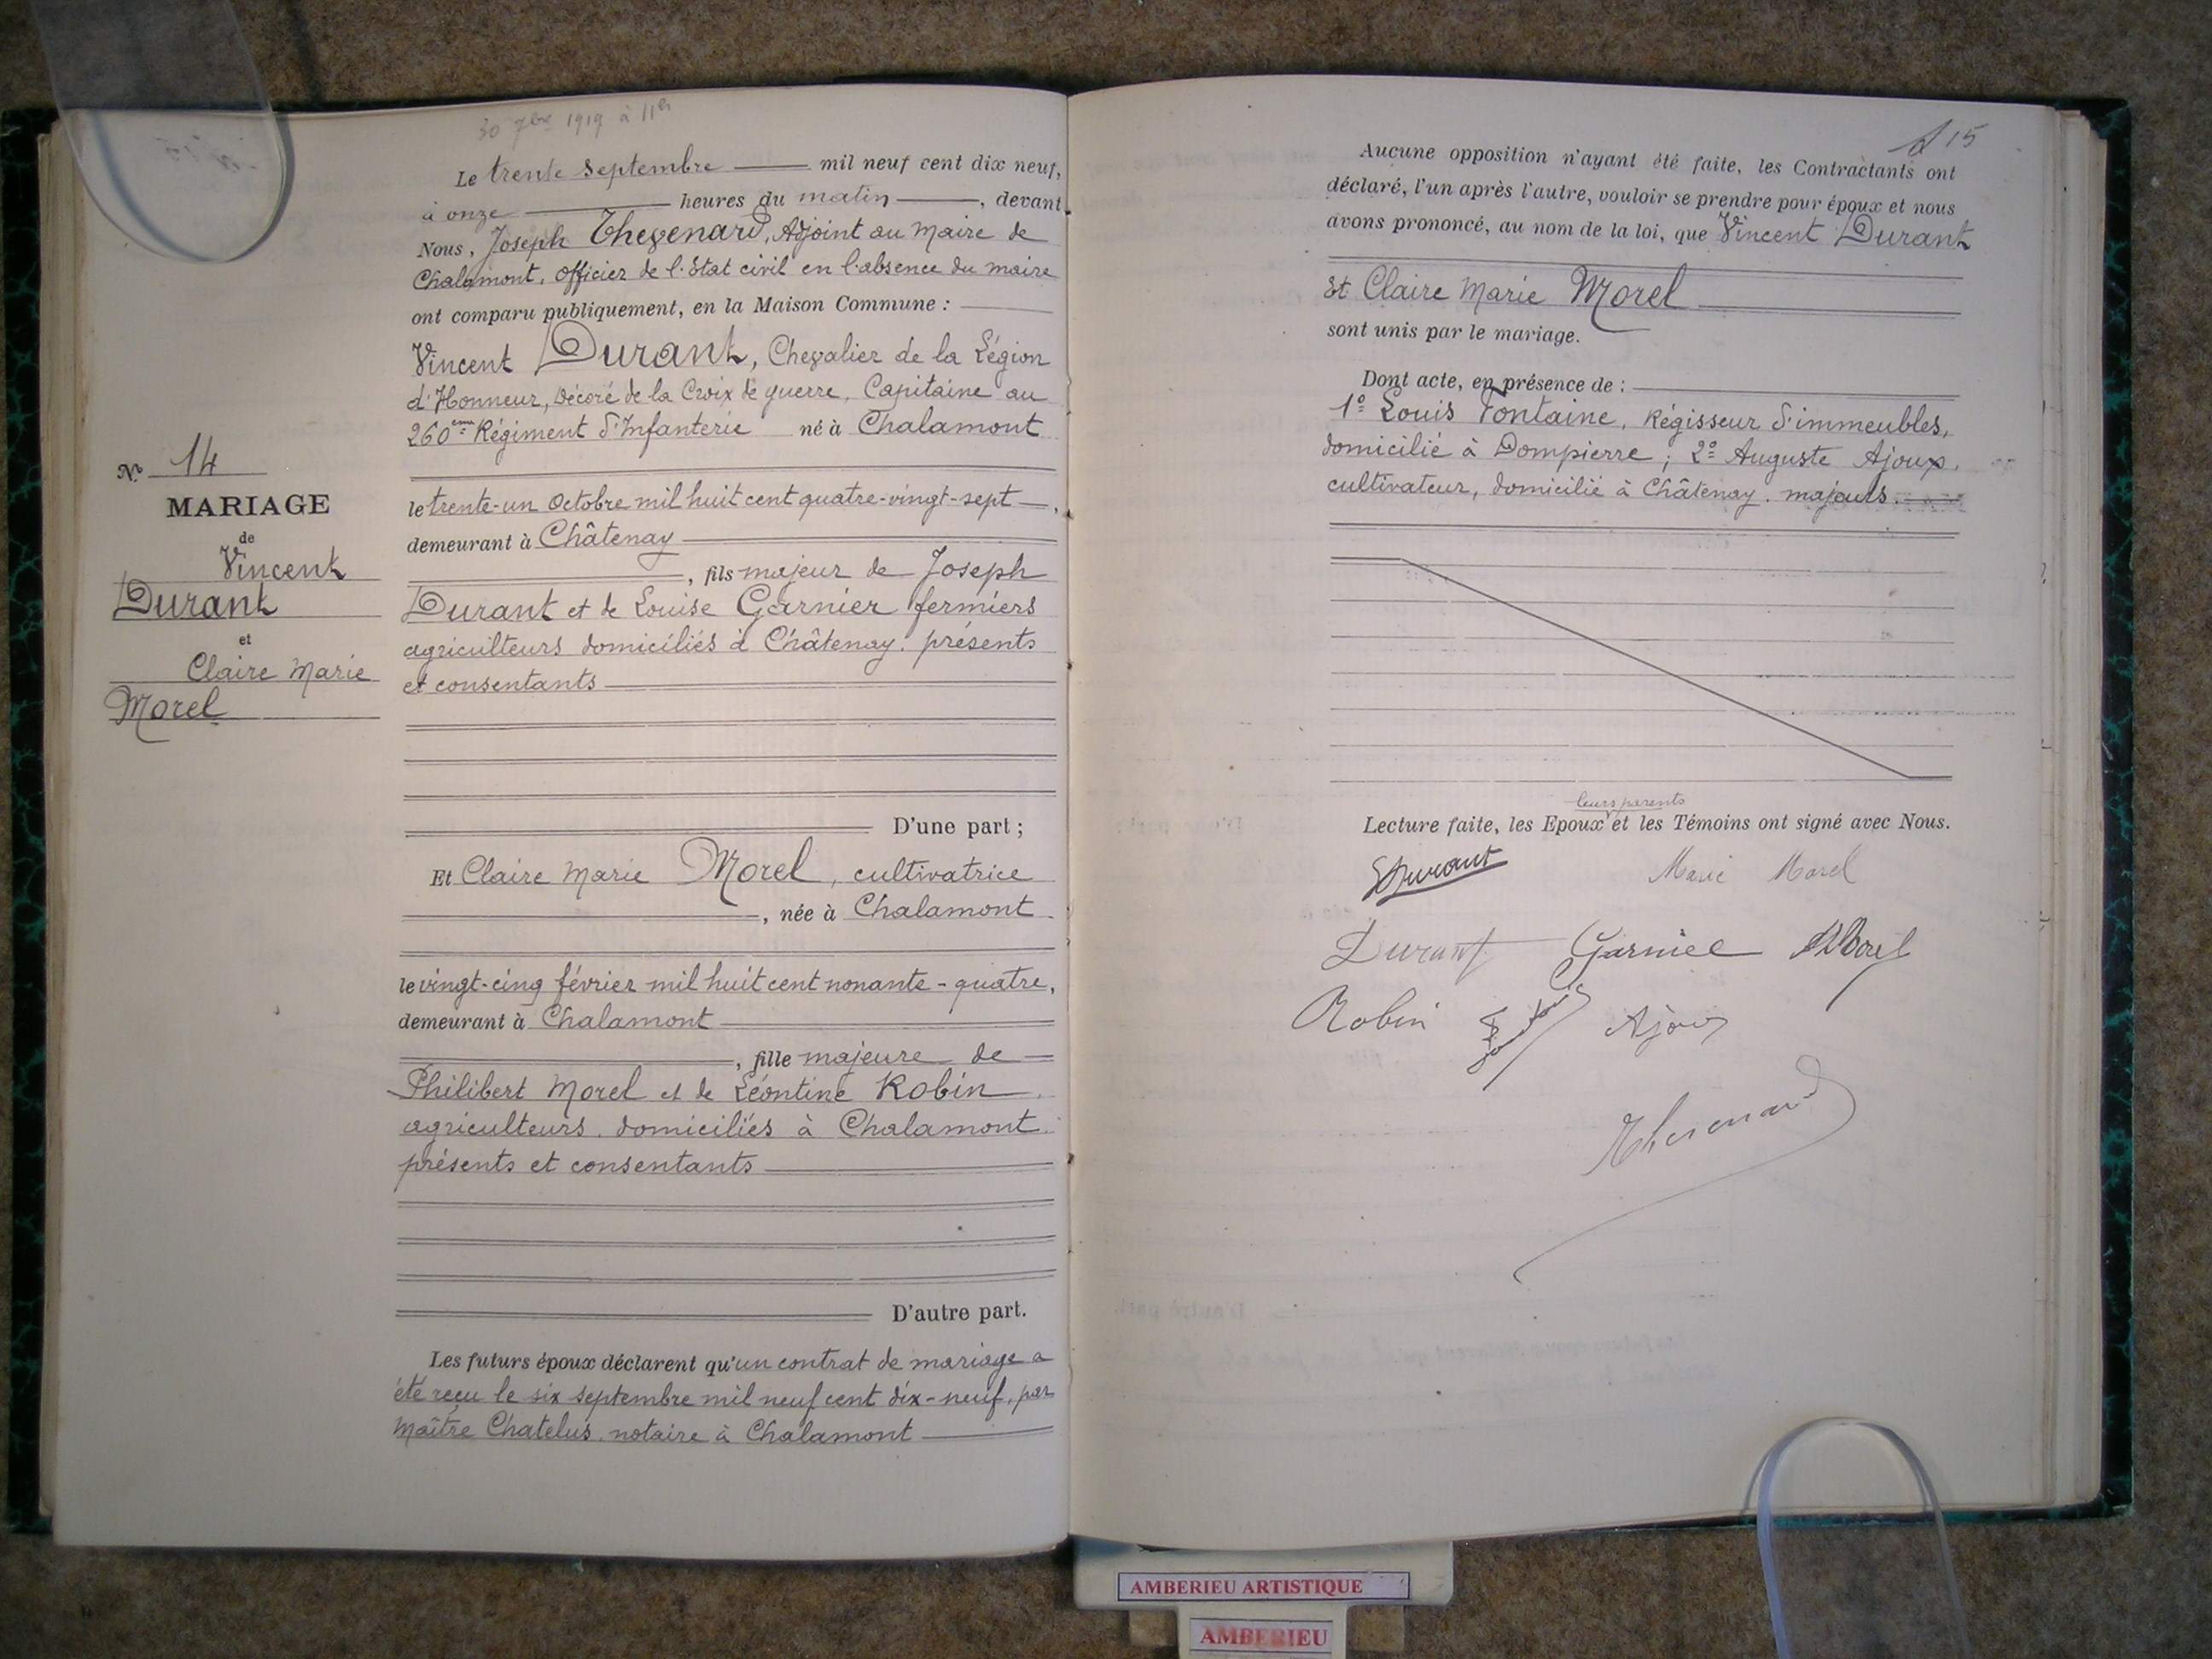 30 7bre 1919 à 11h
Le trente Septembre mil neuf cent dix neuf,
à onze heures du matin, devant
Nous, Joseph Thevenard, Adjoint au Maire de
Chalamont, Officier de l'Etat civil en l'absence du maire
ont comparu publiquement, en la Maison Commune :
Vincent Durant, Chevalier de la Légion
d'Honneur, Décoré de la Croix de guerre, Capitaine au
260ème Régiment d'Infanterie né à Chalamont
le trente-un Octobre mil huit cent quatre-vingt-sept,
demeurant à Châtenay
, fils majeur de Joseph
Durant et de Louise Garnier fermiers
agriculteurs domiciliés à Châtenay. présents
et consentants
D'une part ;
Et Claire Marie Morel, cultivatrice
, née à Chalamont
le vingt-cinq février mil huit cent nonante-quatre,
demeurant à Chalamont
, fille majeure de
Philibert Morel et de Léontine Robin
agriculteurs domiciliés à Chalamont.
présents et consentants
D'autre part.
Les futurs époux déclarent qu'un contrat de mariage a
été reçu le six septembre mil neuf cent dix-neuf, par
Maître Chatelus notaire à Chalamont
No 14
MARIAGE
de
Vincent
Durant
et
Claire Marie
Morel
15
Aucune opposition n'ayant été faite, les Contractants ont
déclaré, l'un après l'autre, vouloir se prendre pour époux et nous
avons prononcé, au nom de la loi, que Vincent Durant
Et Claire Marie Morel
sont unis par le mariage.
Dont acte, en présence de :
1º Louis Fontaine, Régisseur d'immeubles,
domicilié à Dompierre ; 2º Auguste Ajoux,
cultivateur, domicilié à Châtenay. majeurs.
leurs parents
Lecture faite, les Epoux et les Témoins ont signé avec Nous.
Durant Marie Morel
Durant Garnier Morel
Robin Ajoux
Thevenard
AMBERIEU ARTISTIQUE
AMBERIEU